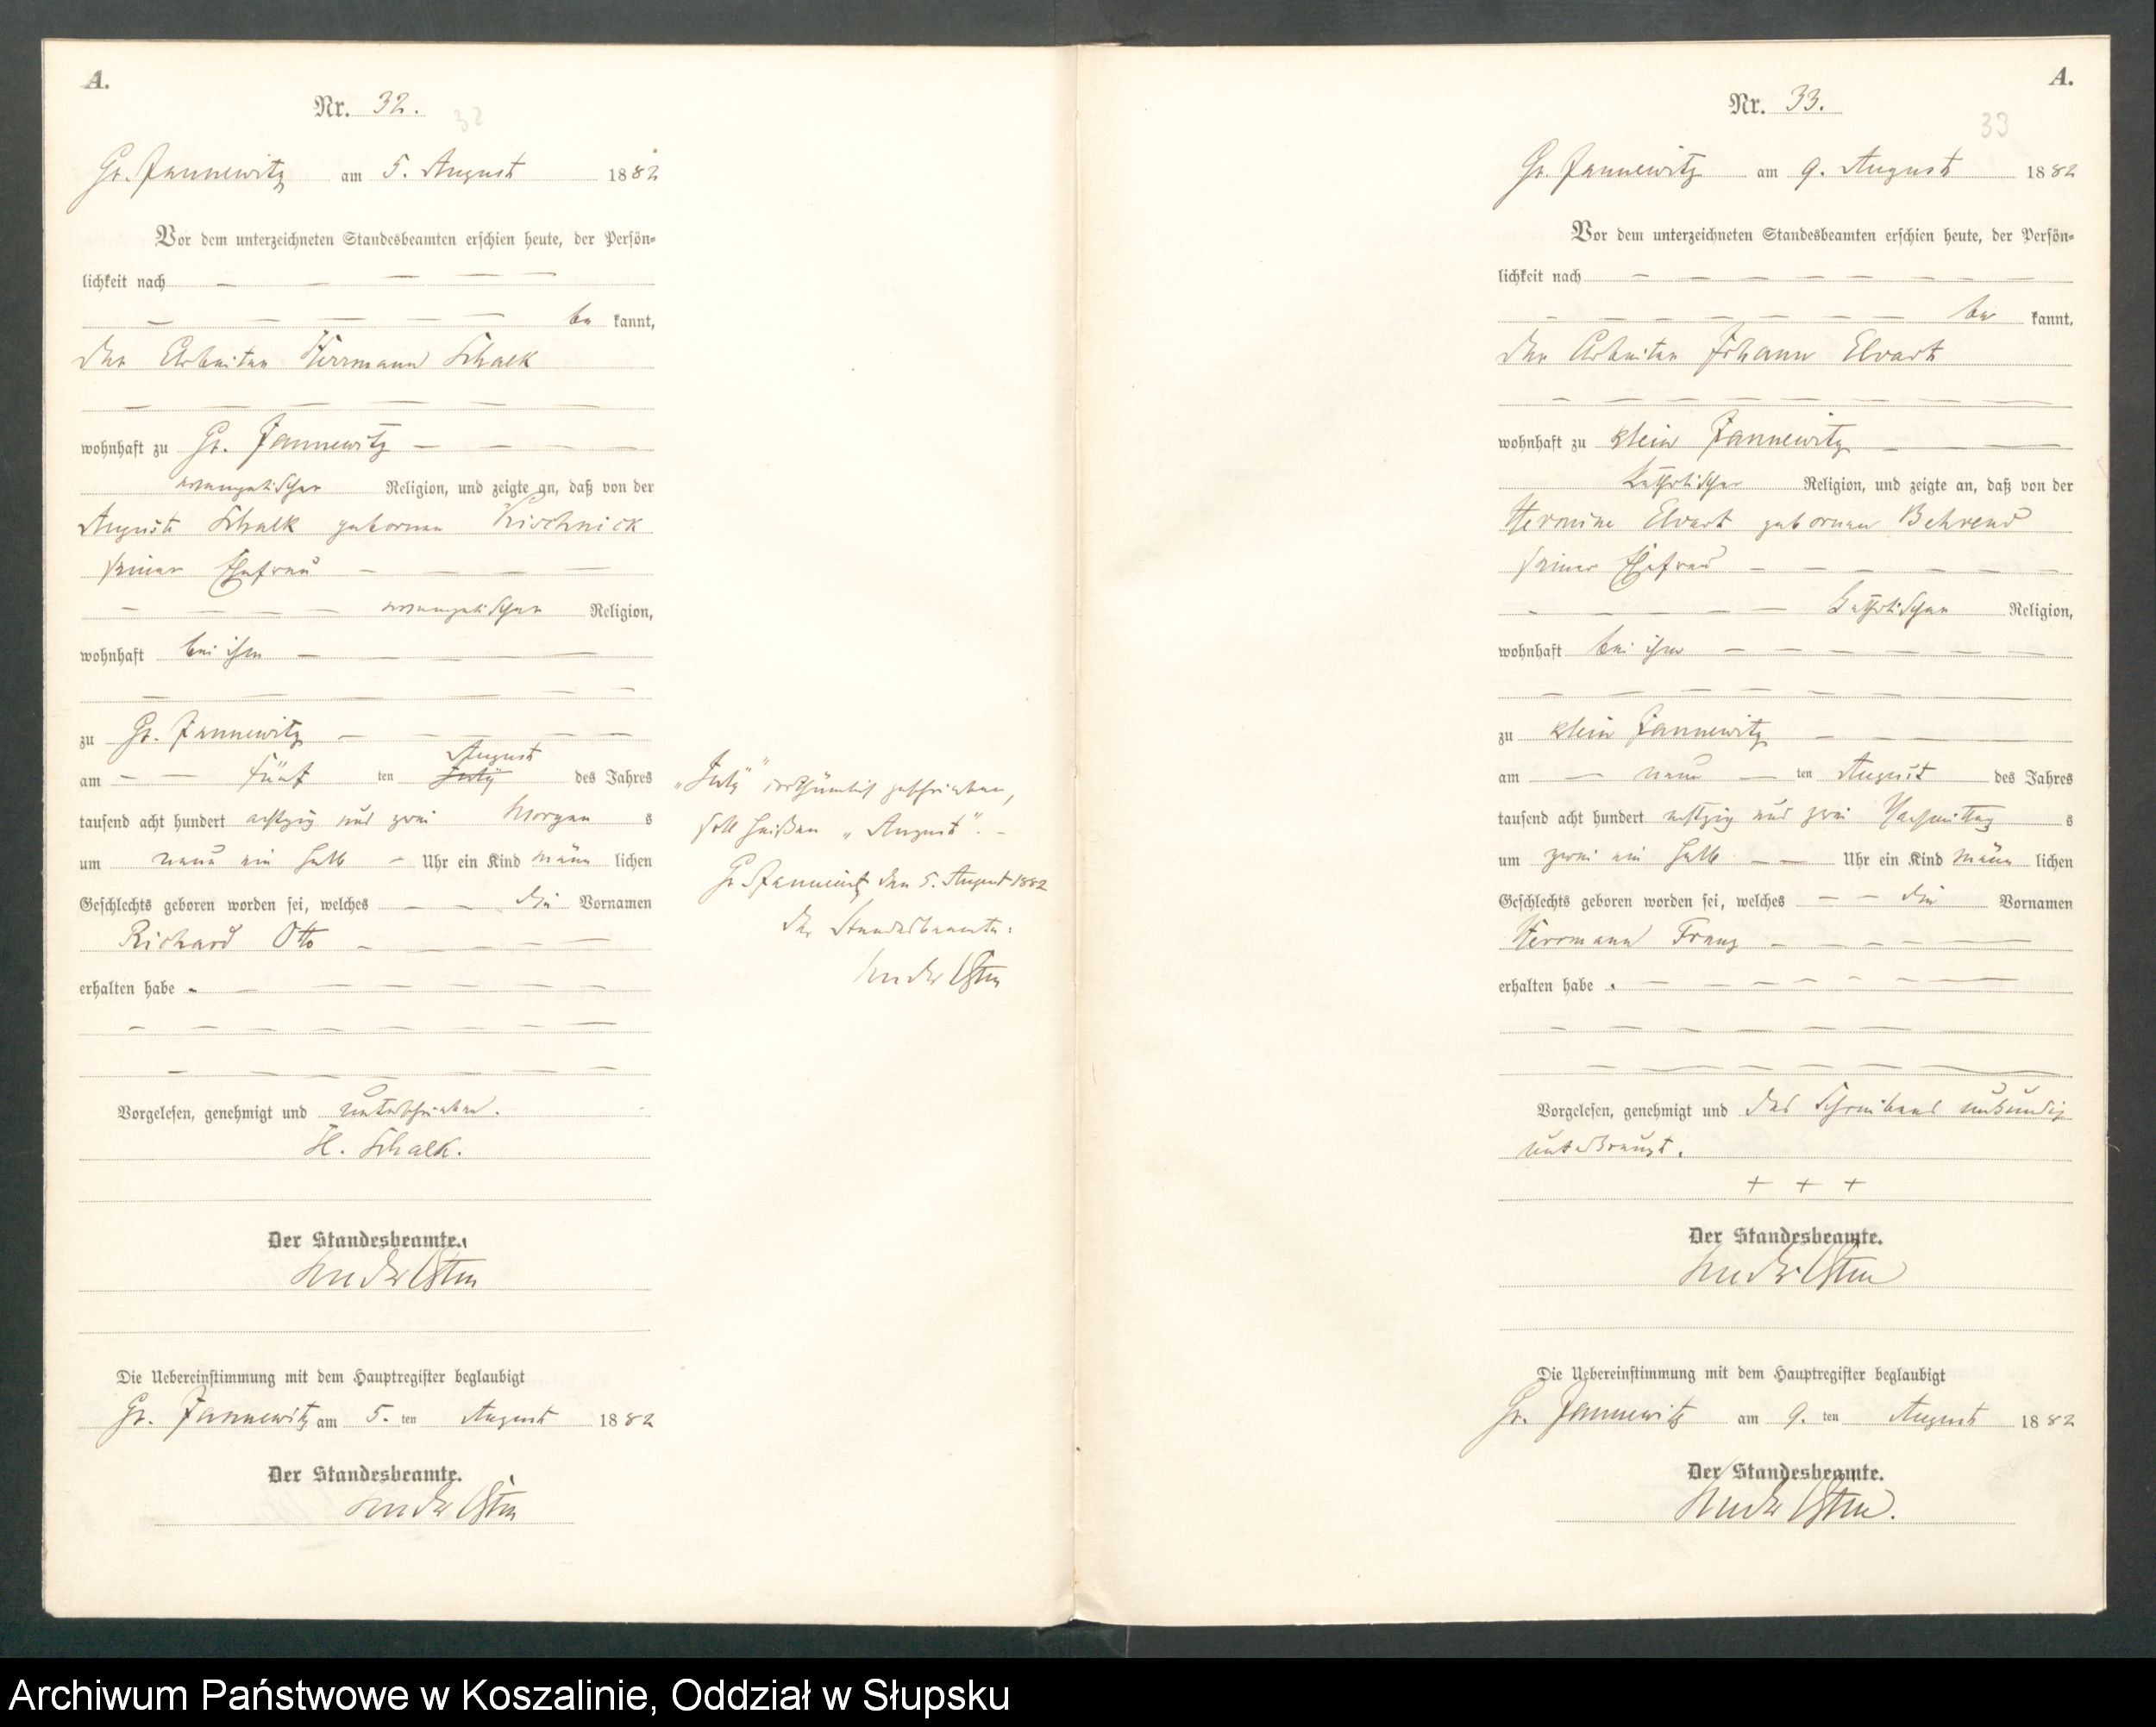 A.
Nr. 32.
32
Gr. Jannewitz am 5. August 1882
Vor dem unterzeichneten Standesbeamten erschien heute, der Persön-
lichkeit nach — — — — —
— — — — — be kannt,
der Arbeiter Herrmann Schalk
— — — — — —
wohnhaft zu Gr. Jannewitz — — — —
evangelischer Religion, und zeigte an, daß von der
Auguste Schalk geborenen Kirschnick
seiner Ehefrau — — — —
— — — — evangelischer Religion,
wohnhaft bei ihm — — — — —
— — — — — —
zu Gr. Jannewitz — — — — —
August
am — — fünf ten July des Jahres
tausend acht hundert achtzig und zwei Morgens
um neun ein halb — Uhr ein Kind männ lichen
Geschlechts geboren worden sei, welches — — die Vornamen
Richard Otto — — — — —
erhalten habe. — — — — — — —
— — — — — — — —
— — — — — — —
Vorgelesen, genehmigt und unterschrieben.
H. Schalk.
Der Standesbeamte.
Die Uebereinstimmung mit dem Hauptregister beglaubigt
Gr. Jannewitz am 5. ten August 1882
Der Standesbeamte.
„July“ irrthümlich geschrieben,
soll heißen „August“. –
Gr. Jannewitz den 5. August 1882
Der Standesbeamte:
A.
Nr. 33.
33
Gr. Jannewitz am 9. August 1882
Vor dem unterzeichneten Standesbeamten erschien heute, der Persön-
lichkeit nach — — — — — — — —
— — — — — — — be kannt,
der Arbeiter Johann Elvart
— — — — — — — — —
wohnhaft zu klein Jannewitz — —
katholischer Religion, und zeigte an, daß von der
Hermine Elvart geborenen Behrend
seiner Ehefrau — — — — — —
— — — — — katholischer Religion,
wohnhaft bei ihm — — — — — —
— — — — — — — —
zu klein Jannewitz — — —
am — neun — ten August des Jahres
tausend acht hundert achtzig und zwei Nachmittags
um zwei ein halb — — Uhr ein Kind männ lichen
Geschlechts geboren worden sei, welches — — die Vornamen
Herrmann Franz — — — — —
erhalten habe. — — — — — — —
— — — — — — — —
— — — — — — —
Vorgelesen, genehmigt und des Schreibens unkundig
unterkreuzt.
+ + +
Der Standesbeamte.
Die Uebereinstimmung mit dem Hauptregister beglaubigt
Gr. Jannewitz am 9. ten August 1882
Der Standesbeamte.
Archiwum Państwowe w Koszalinie, Oddział w Słupsku